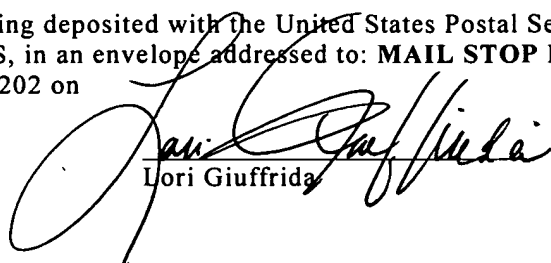 ing deposited with the United States Postal Se
S, in an envelope addressed to: MAIL STOP
202 on
Lori Giuffrida
Lori Giuffrida